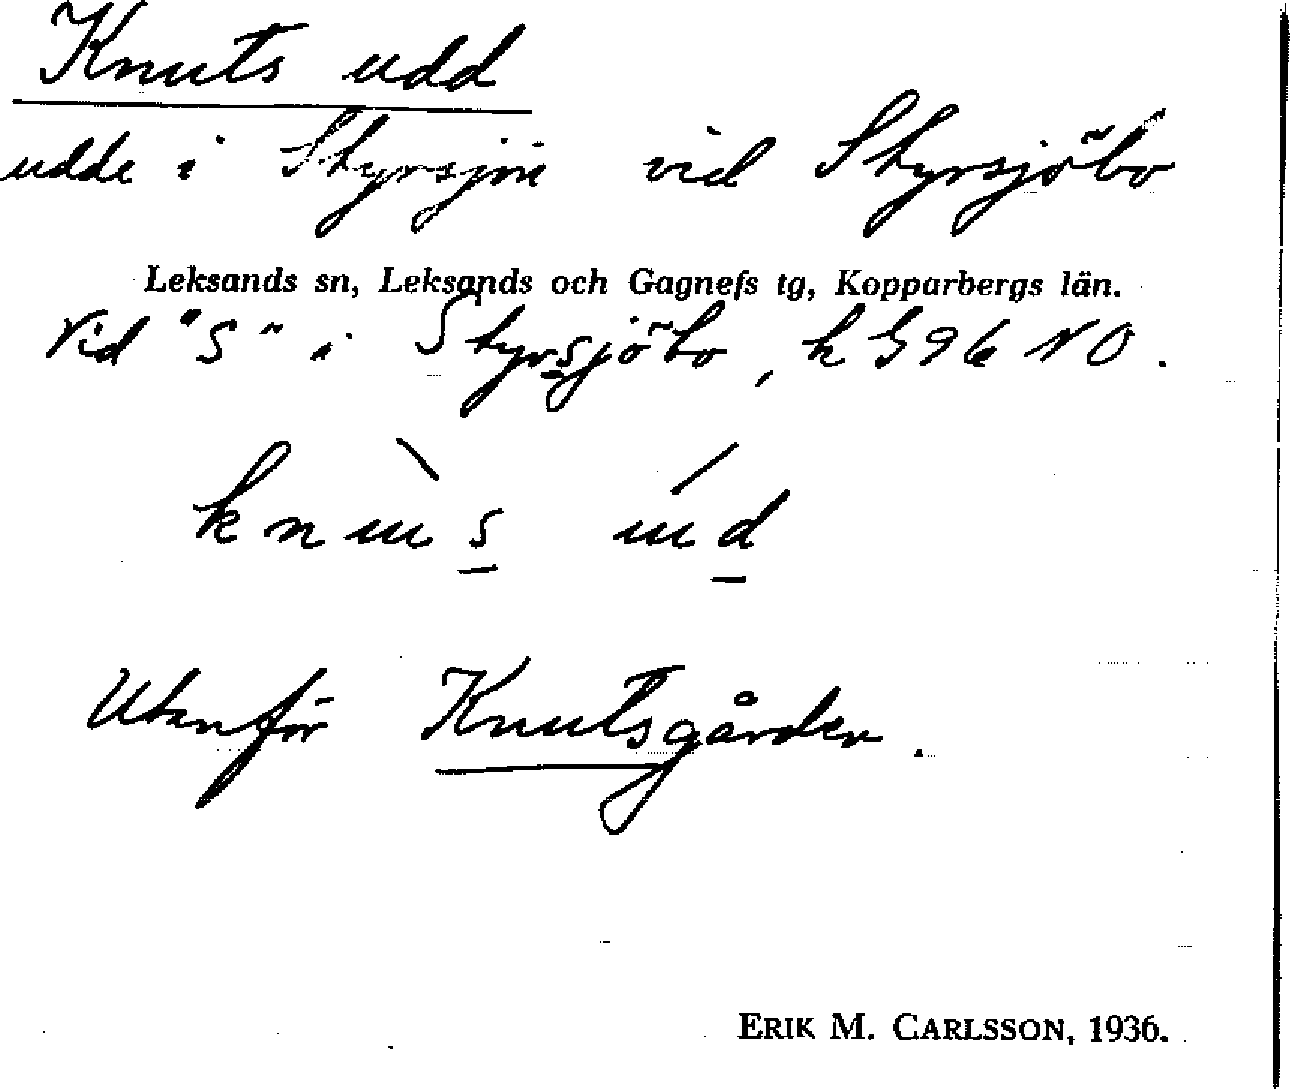 Knuts udd
udde i Styrsjön vid Styrsjöbo
Leksands sn, Leksands och Gagnefs tg, Kopparbergs län.
Vid "S" i Styrsjöbo, k G96 NO.
knùs úd
Utanför Knutsgården.
ERIK M. CARLSSON, 1936.